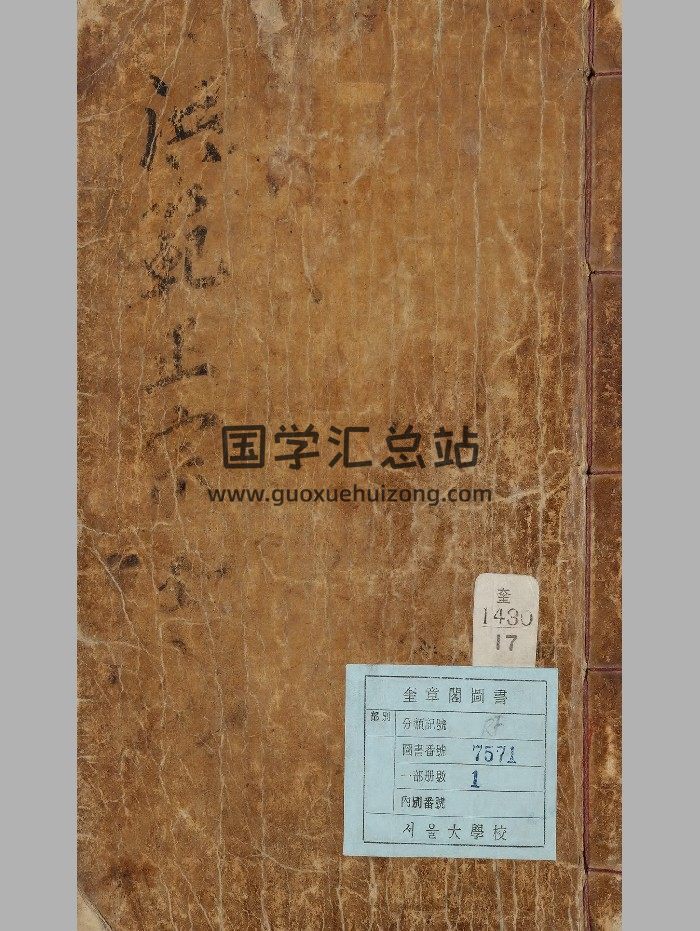 洪範正宗
国学汇总站
www.guoxuehuizong.com
奎
1430
17
奎章閣圖書
部別
分類記號
圖書番號 7571
一部册數 1
內別番號
서울大學校